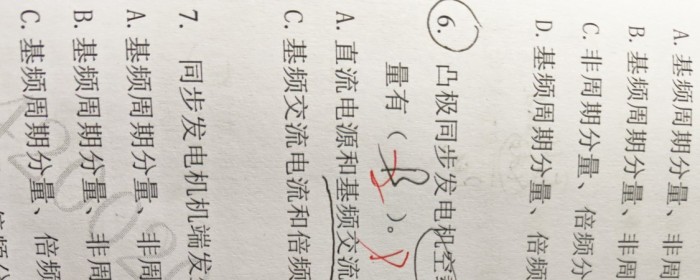 A. 基频周期分量、非周
B. 基频周期分量、非周
C. 非周期分量、倍频分
D. 基频周期分量、倍频
6. 凸极同步发电机空
量有（B）。
A. 直流电源和基频交流
C. 基频交流电流和倍频
7. 同步发电机机端发
A. 基频周期分量、非周
B. 基频周期分量、非周
C. 基频周期分量、倍频